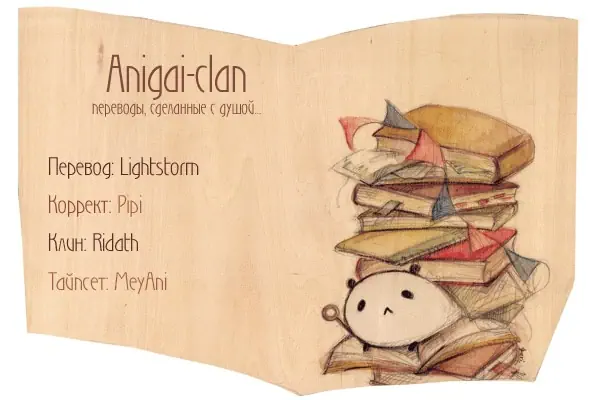 Anigai-clan
переводы, сделанные с душой...
Перевод: Lightstorm
Коррект: Pipi
Клин: Ridath
Тайпсет: MeyAni